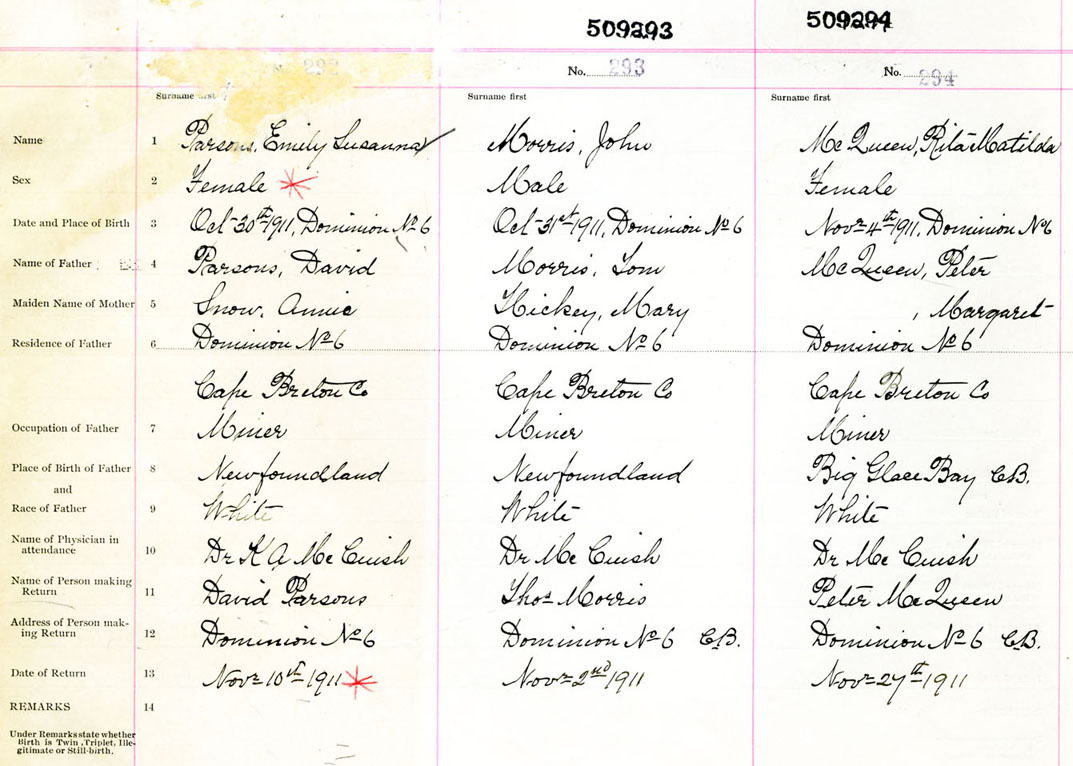 509293 509294
292 No. 293 No. 294
Surname first Surname first Surname first
Name 1 Parsons, Emily Susanna Morris, John Mc Queen, Rita Matilda
Sex 2 Female Male Female
Date and Place of Birth 3 Oct 30th 1911, Dominion No 6 Oct 31st 1911, Dominion No 6 Nov 4th 1911, Dominion No 6
Name of Father 4 Parsons, David Morris, Tom McQueen, Peter
Maiden Name of Mother 5 Snow, Annie Hickey, Mary , Margaret
Residence of Father 6 Dominion No 6 Dominion No 6 Dominion No 6
Cape Breton Co Cape Breton Co Cape Breton Co
Occupation of Father 7 Miner Miner Miner
Place of Birth of Father 8 Newfoundland Newfoundland Big Glace Bay C.B.
and
Race of Father 9 White White White
Name of Physician in
attendance 10 Dr K A Mc Cuish Dr Mc Cuish Dr Mc Cuish
Name of Person making
Return 11 David Parsons Thos Morris Peter McQueen
Address of Person mak-
ing Return 12 Dominion No 6 Dominion No 6 C.B. Dominion No 6 C.B.
Date of Return 13 Nov 10th 1911 Nov 2nd 1911 Nov 27th 1911
REMARKS 14
Under Remarks state whether
Birth is Twin, Triplet, Ille-
gitimate or Still-birth.